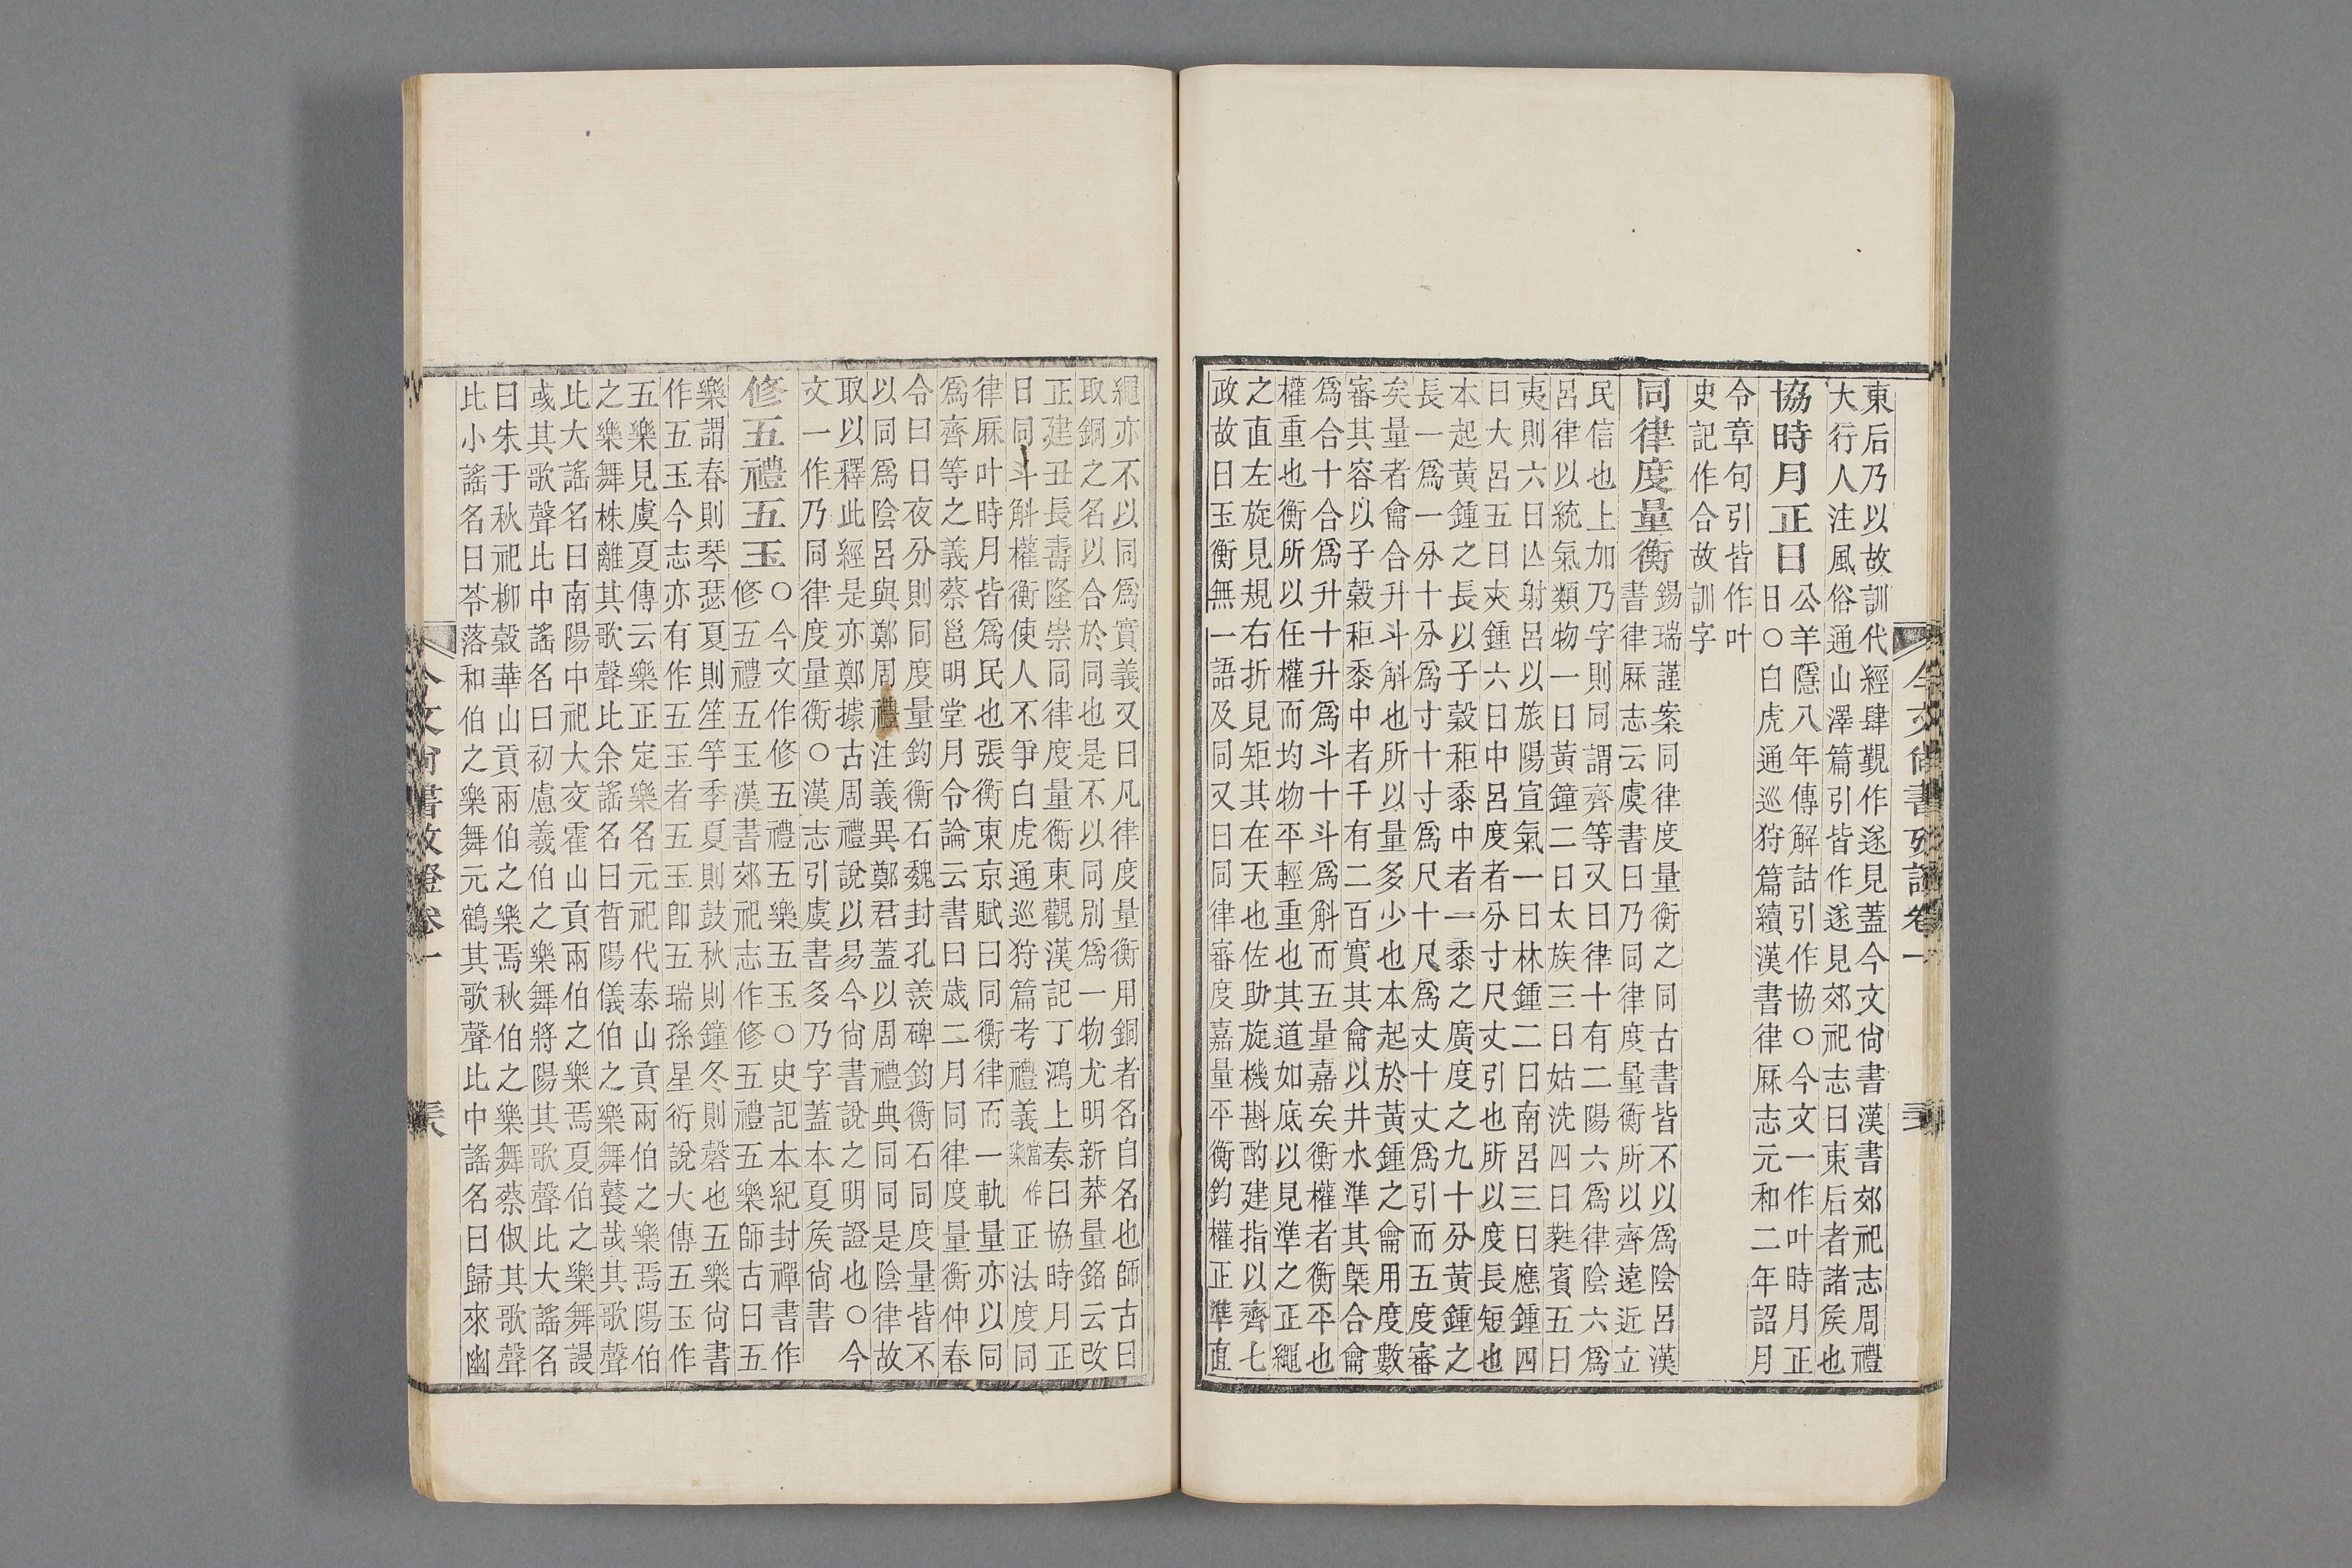 東后乃以故訓代經肆覲作遂見蓋今文尙書漢書郊祀志周禮
大行人注風俗通山澤篇引皆作遂見郊祀志曰東后者諸矦也
協時月正日公羊隱八年傳解詁引作協○今文一作叶時月正
日○白虎通巡狩篇續漢書律厤志元和二年詔月
令章句引皆作叶
史記作合故訓字
同律度量衡錫瑞謹案同律度量衡之同古書皆不以爲陰呂漢
書律厤志云虞書曰乃同律度量衡所以齊遠近立
民信也上加乃字則同謂齊等又曰律十有二陽六爲律陰六爲
呂律以統氣類物一曰黃鐘二曰太族三曰姑洗四曰蕤賓五曰
夷則六曰亾射呂以旅陽宣氣一曰林鍾二曰南呂三曰應鍾四
曰大呂五曰夾鍾六曰中呂度者分寸尺丈引也所以度長短也
本起黃鍾之長以子穀秬黍中者一黍之廣度之九十分黃鍾之
長一爲一分十分爲寸十寸爲尺十尺爲丈十丈爲引而五度審
矣量者龠合升斗斛也所以量多少也本起於黃鍾之龠用度數
審其容以子穀秬黍中者千有二百實其龠以井水準其槩合龠
爲合十合爲升十升爲斗十斗爲斛而五量嘉矣衡權者衡平也
權重也衡所以任權而均物平輕重也其道如底以見準之正繩
之直左旋見規右折見矩其在天也佐助旋機斟酌建指以齊七
政故曰玉衡無一語及同又曰同律審度嘉量平衡鈞權正準直
今文尙書攷證卷一
繩亦不以同爲實義又曰凡律度量衡用銅者名自名也師古曰
取銅之名以合於同也是不以同別爲一物尤明新莽量銘云改
正建丑長壽隆崇同律度量衡東觀漢記丁鴻上奏曰協時月正
日同斗斛權衡使人不爭白虎通巡狩篇考禮義當作樂正法度同
律厤叶時月皆爲民也張衡東京賦曰同衡律而一軌量亦以同
爲齊等之義蔡邕明堂月令論云書曰歲二月同律度量衡仲春
令曰日夜分則同度量鈞衡石魏封孔羨碑鈞衡石同度量皆不
以同爲陰呂與鄭周禮注義異鄭君蓋以周禮典同同是陰律故
取以釋此經是亦鄭據古周禮說以易今尙書說之明證也○今
文一作乃同律度量衡○漢志引虞書多乃字蓋本夏矦尙書
修五禮五玉○今文作修五禮五樂五玉○史記本紀封禪書作
修五禮五玉漢書郊祀志作修五禮五樂師古曰五
樂謂春則琴瑟夏則笙竽季夏則鼓秋則鐘冬則磬也五樂尙書
作五玉今志亦有作五玉者五玉卽五瑞孫星衍說大傳五玉作
五樂見虞夏傳云樂正定樂名元祀代泰山貢兩伯之樂焉陽伯
之樂舞株離其歌聲比余謠名曰晳陽儀伯之樂舞鼚哉其歌聲
比大謠名曰南陽中祀大交霍山貢兩伯之樂焉夏伯之樂舞謾
彧其歌聲比中謠名曰初慮羲伯之樂舞將陽其歌聲比大謠名
曰朱于秋祀柳穀華山貢兩伯之樂焉秋伯之樂舞蔡俶其歌聲
比小謠名曰苓落和伯之樂舞元鶴其歌聲比中謠名曰歸來幽
今文尙書攷證卷一